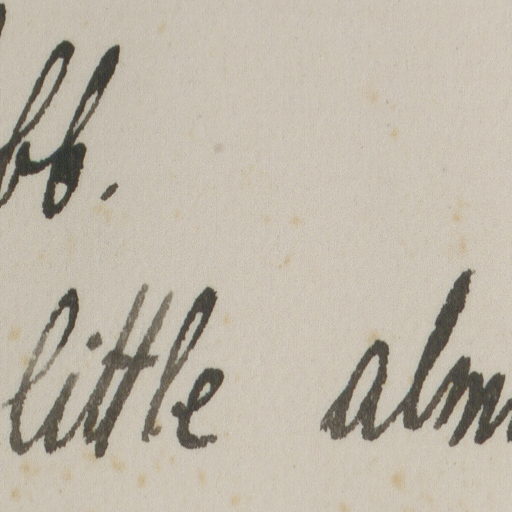 bb.
little alm